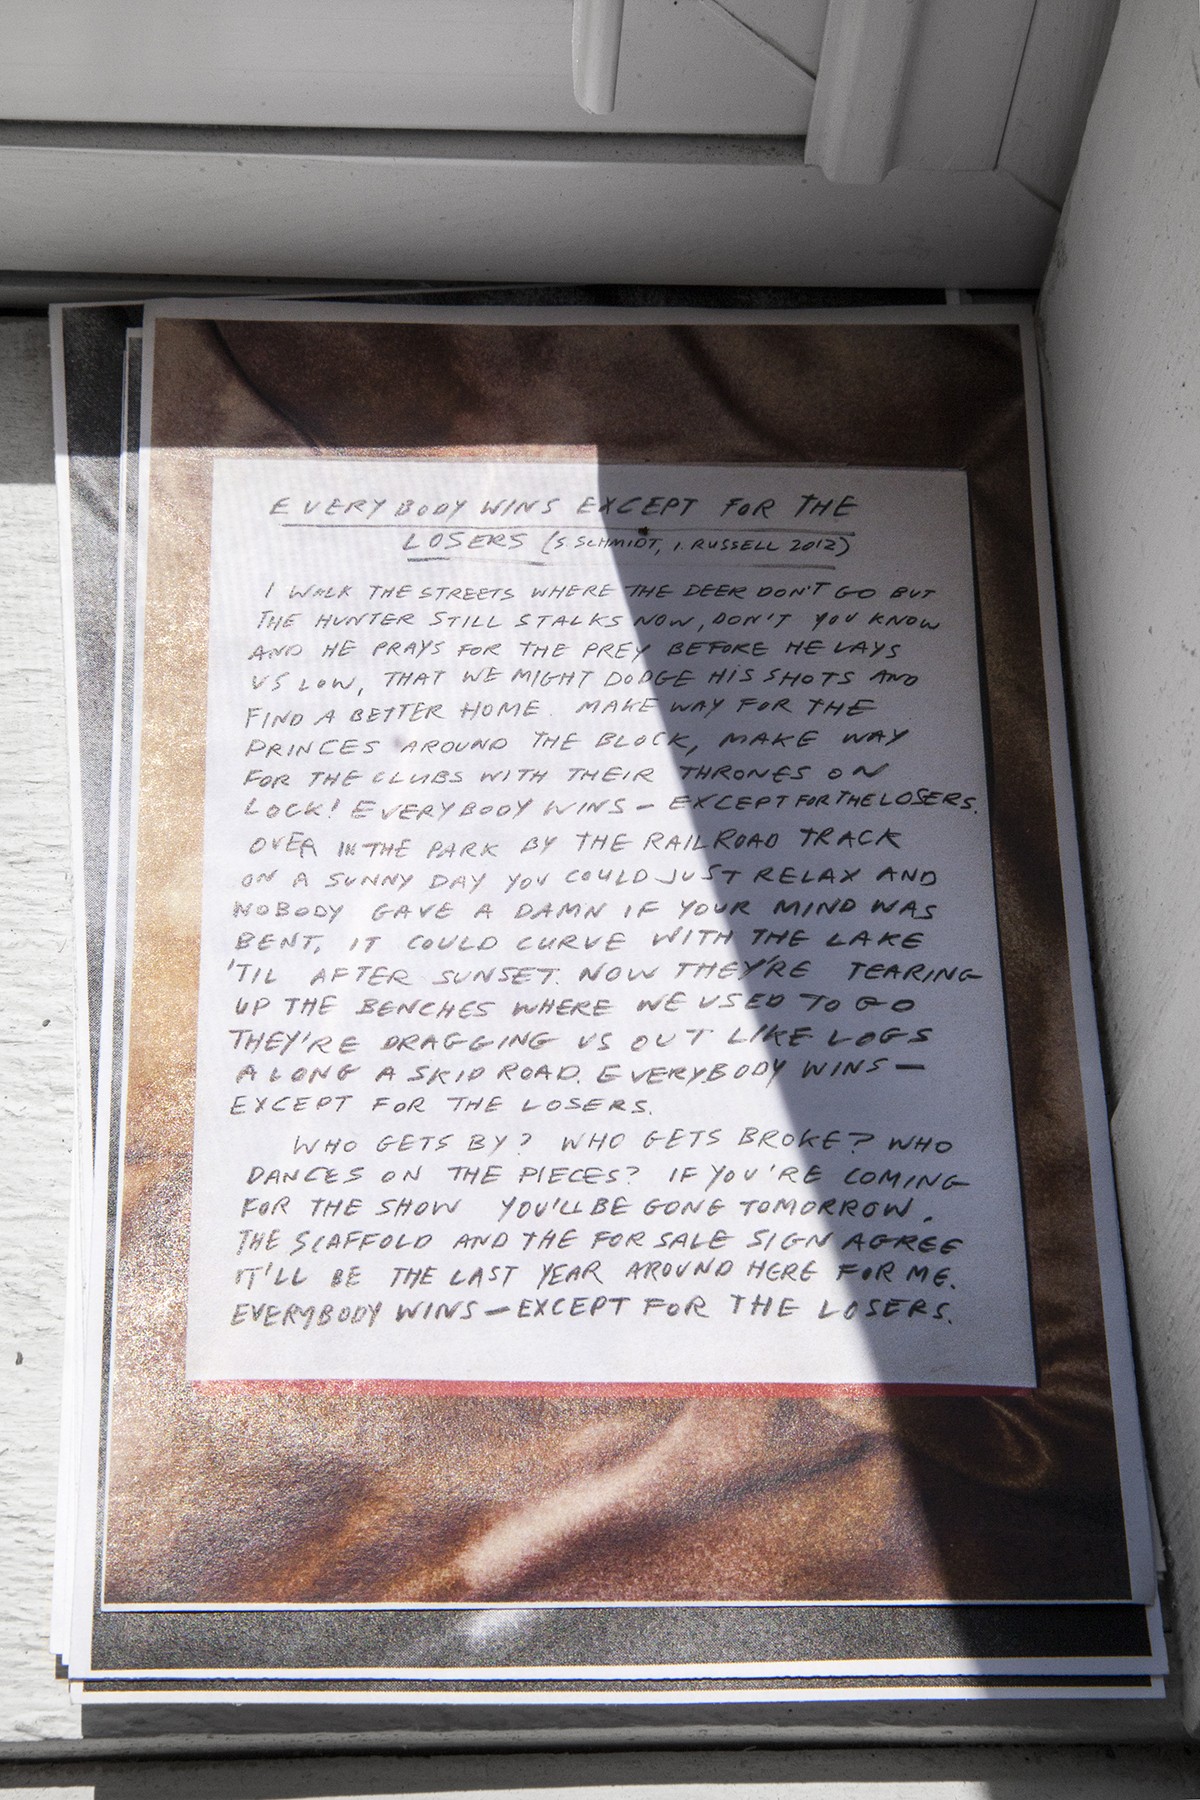 EVERYBODY WINS EXCEPT FOR THE
LOSERS (S. SCHMIDT, I. RUSSELL 2012)
I WALK THE STREETS WHERE THE DEER DON'T GO BUT
THE HUNTER STILL STALKS NOW, DON'T YOU KNOW
AND HE PRAYS FOR THE PREY BEFORE HE LAYS
US LOW, THAT WE MIGHT DODGE HIS SHOTS AND
FIND A BETTER HOME. MAKE WAY FOR THE
PRINCES AROUND THE BLOCK, MAKE WAY
FOR THE CLUBS WITH THEIR THRONES ON
LOCK! EVERYBODY WINS - EXCEPT FOR THE LOSERS.
OVER IN THE PARK BY THE RAILROAD TRACK
ON A SUNNY DAY YOU COULD JUST RELAX AND
NOBODY GAVE A DAMN IF YOUR MIND WAS
BENT, IT COULD CURVE WITH THE LAKE
'TIL AFTER SUNSET. NOW THEY'RE TEARING
UP THE BENCHES WHERE WE USED TO GO
THEY'RE DRAGGING US OUT LIKE LOGS
ALONG A SKID ROAD. EVERYBODY WINS -
EXCEPT FOR THE LOSERS.
WHO GETS BY? WHO GETS BROKE? WHO
DANCES ON THE PIECES? IF YOU'RE COMING
FOR THE SHOW YOU'LL BE GONG TOMORROW.
THE SCAFFOLD AND THE FOR SALE SIGN AGREE
IT'LL BE THE LAST YEAR AROUND HERE FOR ME.
EVERYBODY WINS - EXCEPT FOR THE LOSERS.